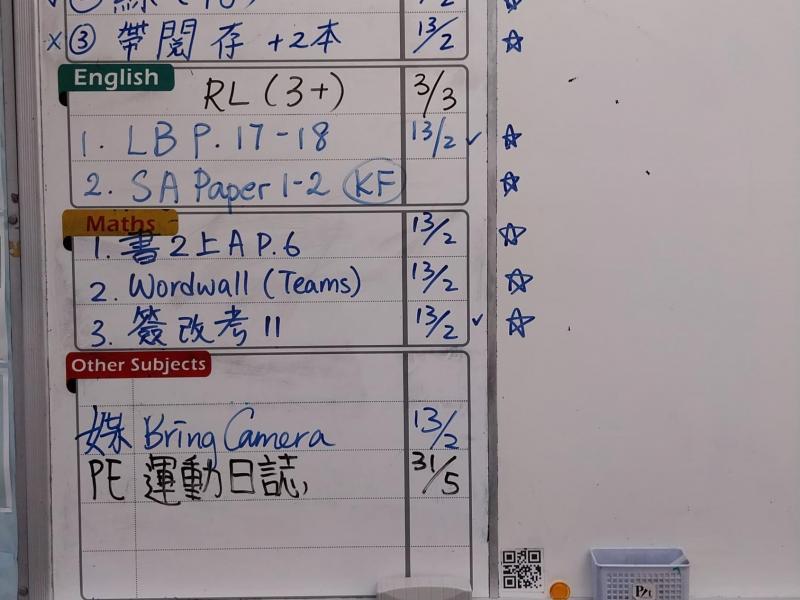 ③ 帶閱存 +2本 13/2
English
RL (3+) 3/3
1. LB P. 17-18 13/2 ✓
2. SA Paper 1-2 KF
Maths
1. 書2上A P.6 13/2
2. Wordwall (Teams) 13/2
3. 簽改考11 13/2 ✓
Other Subjects
Bring Camera 13/2
PE 運動日誌, 31/5